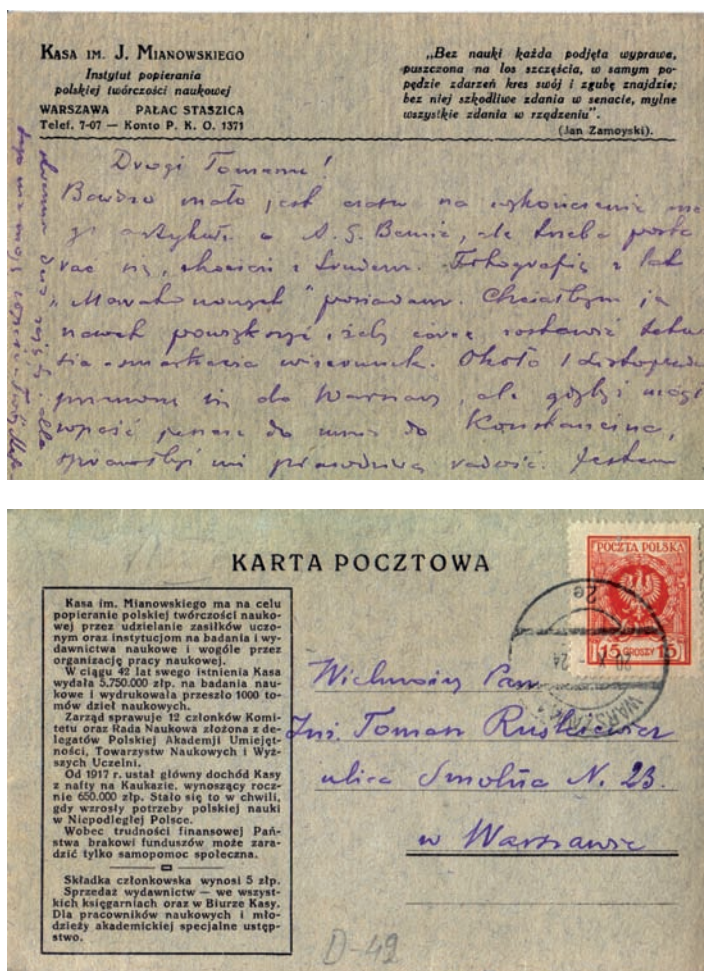 KASA IM. J. MIANOWSKIEGO
Instytut popierania
polskiej twórczości naukowej
WARSZAWA PAŁAC STASZICA
Telef. 7-07 — Konto P. K. O. 1371
„Bez nauki każda podjęta wyprawa,
puszczona na los szczęścia, w samym po-
pędzie zdarzeń kres swój i zgubę znajdzie;
bez niej szkodliwe zdania w senacie, mylne
wszystkie zdania w rządzeniu".
(Jan Zamoyski).
Drogi Tomaszu!
Bardzo mało jest czasu na wykończenie me
go artykułu o A. G. Bemie, ale trzeba posta
rać się, chociaż z trudem. Fotografię z lat
„Maratonowych" posiadam. Chciałbym ja
nawet powiększyć, żeby
wizerunek. Około 1 listopada
się do Warszawy, ale gdybyś mógł
wpaść do mnie do Konstancina,
sprawiłbyś mi prawdziwą radość. Jestem
KARTA POCZTOWA
Kasa im. Mianowskiego ma na celu
popieranie polskiej twórczości nauko-
wej przez udzielanie zasiłków uczo-
nym oraz instytucjom na badania i wy-
dawnictwa naukowe i wogóle przez
organizację pracy naukowej.
W ciągu 42 lat swego istnienia Kasa
wydała 5.750.000 złp. na badania nau-
kowe i wydrukowała przeszło 1000 to-
mów dzieł naukowych.
Zarząd sprawuje 12 członków Komi-
tetu oraz Rada Naukowa złożona z de-
legatów Polskiej Akademji Umiejęt-
ności, Towarzystw Naukowych i Wyż-
szych Uczelni.
Od 1917 r. ustał główny dochód Kasy
z nafty na Kaukazie, wynoszący rocz-
nie 650.000 złp. Stało się to w chwili,
gdy wzrosły potrzeby polskiej nauki
w Niepodległej Polsce.
Wobec trudności finansowej Pań-
stwa brakowi funduszów może zara-
dzić tylko samopomoc społeczna.
Składka członkowska wynosi 5 złp.
Sprzedaż wydawnictw — we wszyst-
kich księgarniach oraz w Biurze Kasy.
Dla pracowników naukowych i mło-
dzieży akademickiej specjalne ustęp-
stwo.
POCZTA POLSKA
15 GROSZY 15
WARSZAWA
2e
Wielmożny Pan
Inż. Tomasz Ruśkiewicz
ulica Smolna N. 23.
w Warszawie
D-49